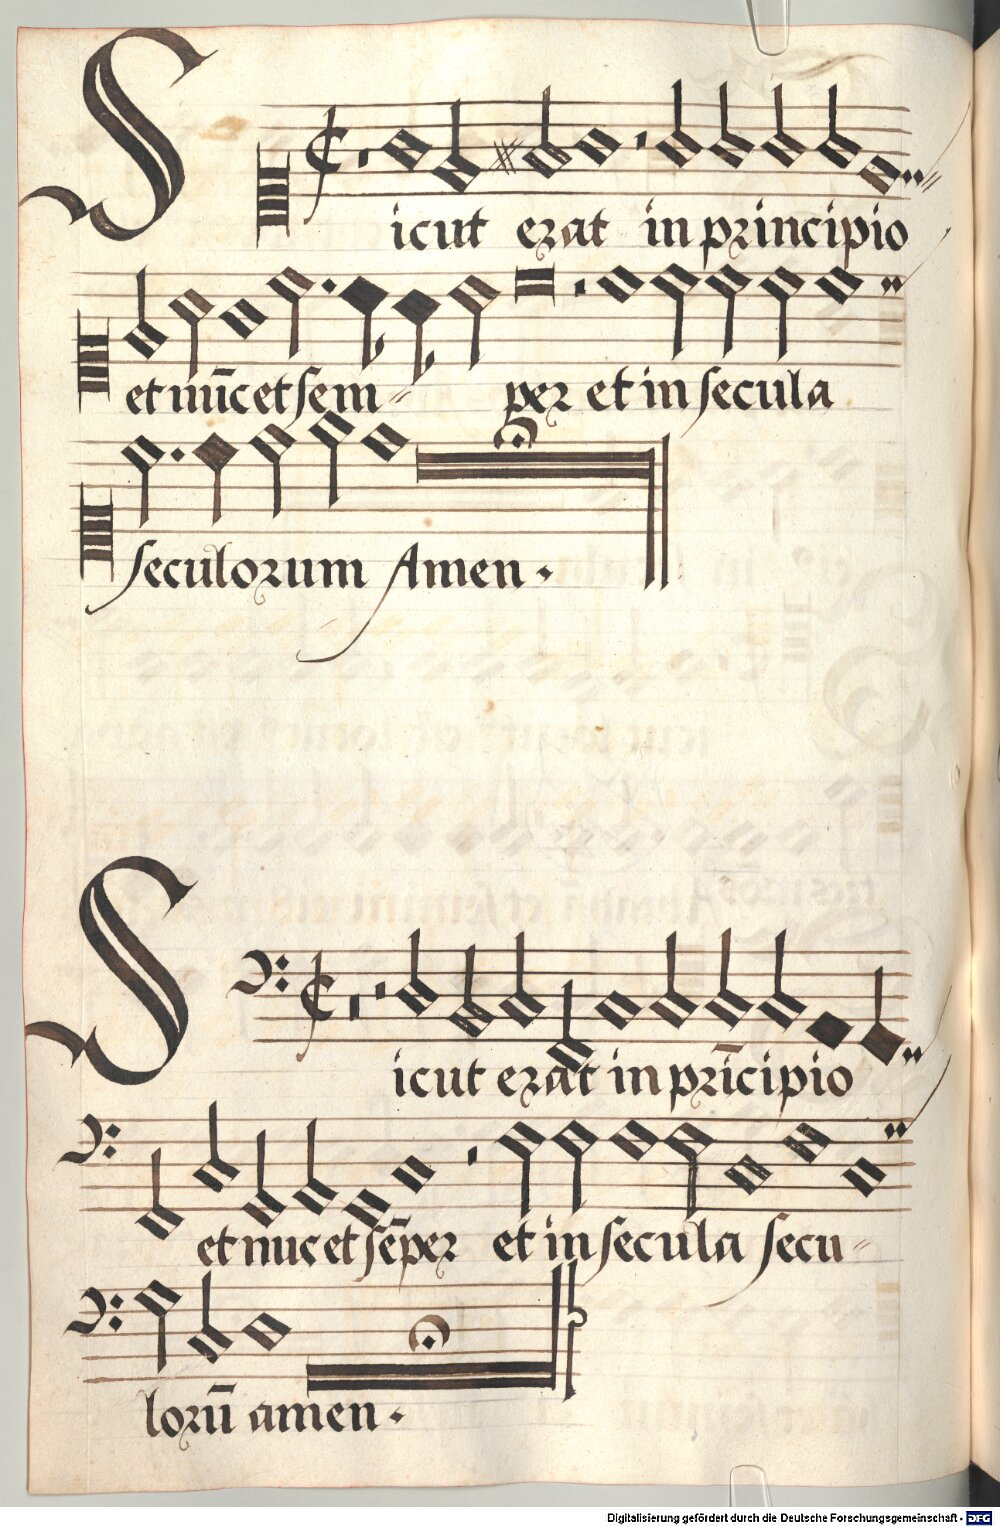 Sicut erat in principio
et nūc et sem- per et in secula
seculorum Amen.
Sicut erat in prīcipio
et nuc et sēper et in secula secu-
lorū amen.
Digitalisierung gefördert durch die Deutsche Forschungsgemeinschaft - DFG